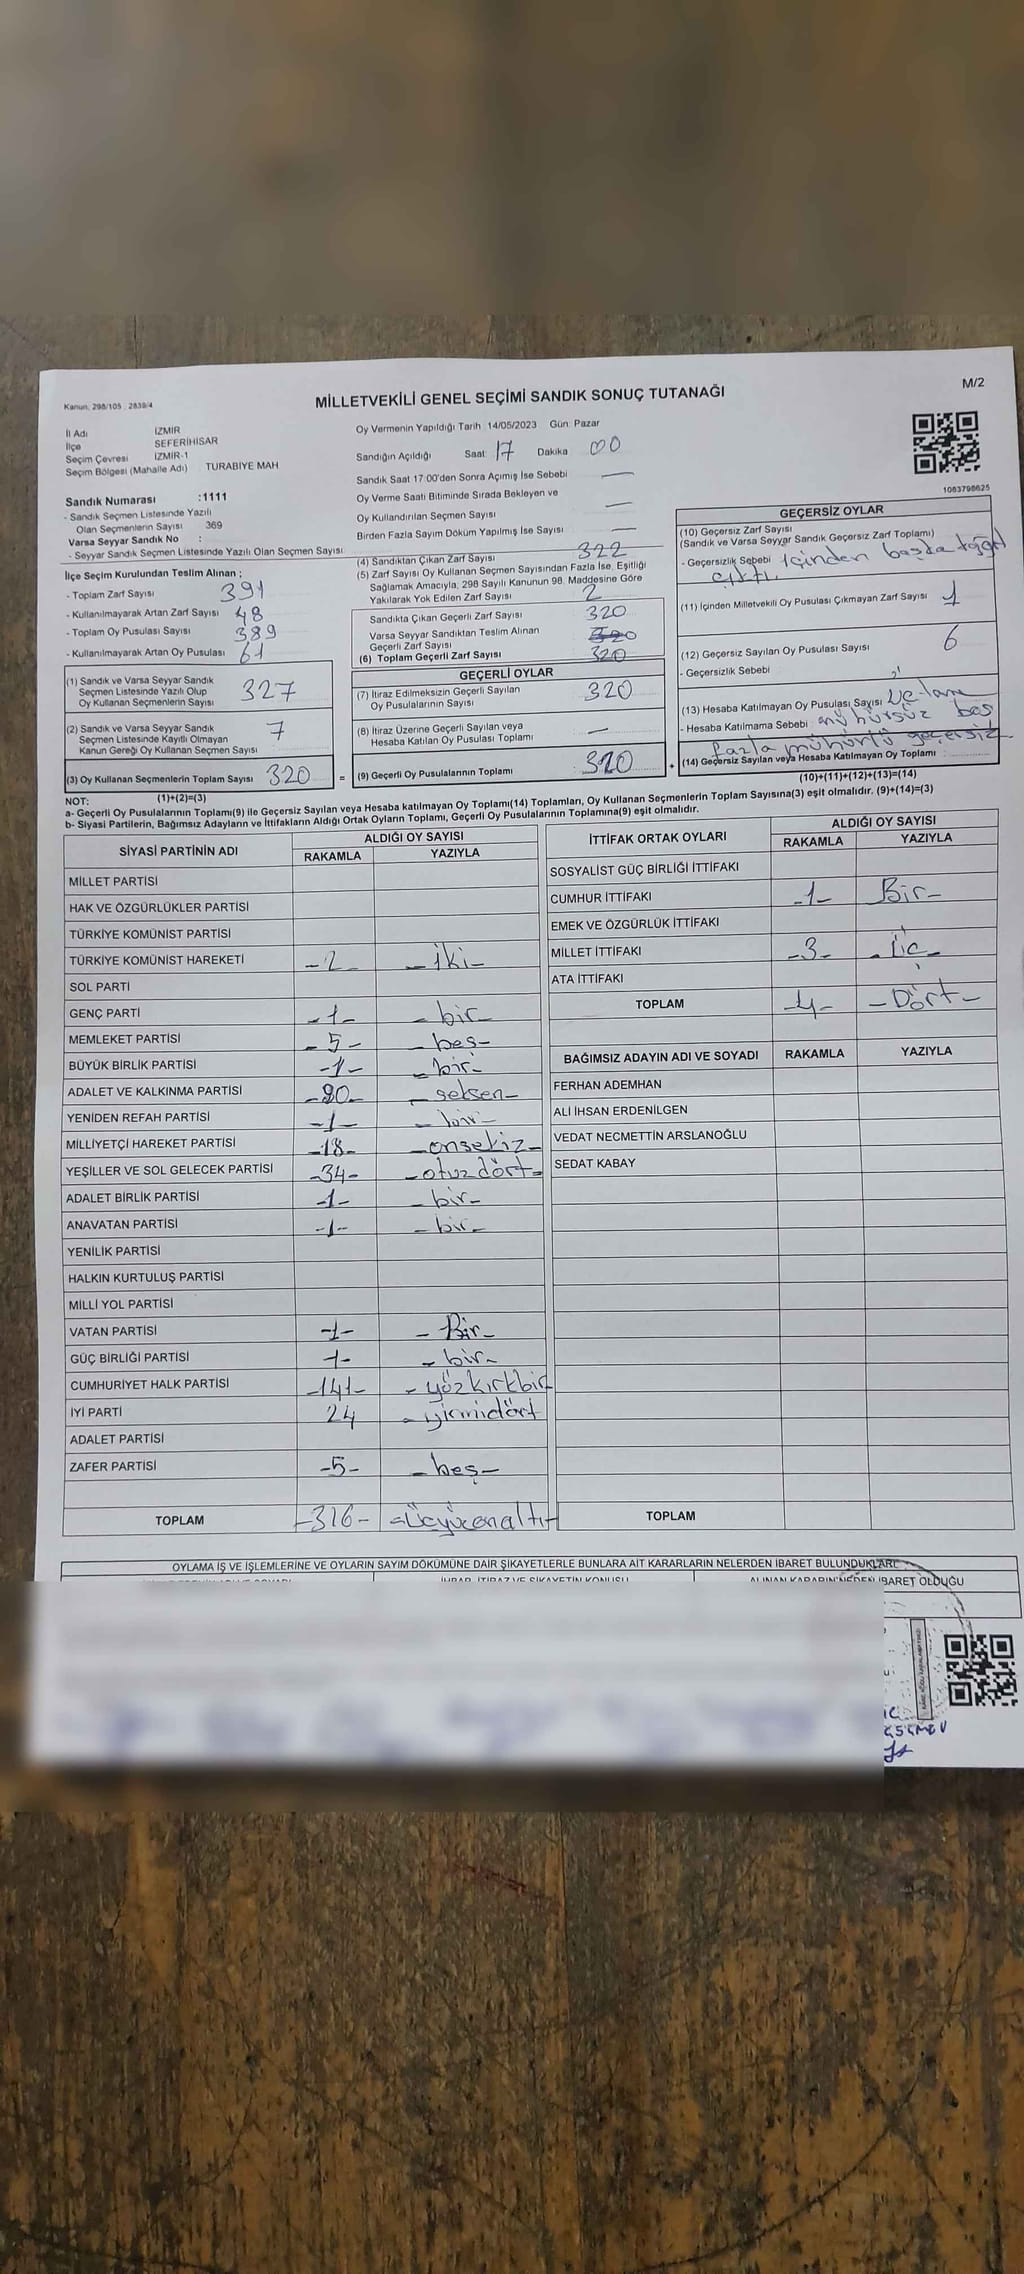 M/2
Kanun: 298/105 , 2839/4
MİLLETVEKİLİ GENEL SEÇİMİ SANDIK SONUÇ TUTANAĞI
İl Adı İZMİR
İlçe SEFERİHİSAR
Seçim Çevresi İZMİR-1
Seçim Bölgesi (Mahalle Adı) TURABIYE MAH
Sandık Numarası :1111
- Sandık Seçmen Listesinde Yazılı
Olan Seçmenlerin Sayısı 369
Varsa Seyyar Sandık No :
- Seyyar Sandık Seçmen Listesinde Yazılı Olan Seçmen Sayısı
İlçe Seçim Kurulundan Teslim Alınan ;
- Toplam Zarf Sayısı 391
- Kullanılmayarak Artan Zarf Sayısı 48
- Toplam Oy Pusulası Sayısı 389
- Kullanılmayarak Artan Oy Pusulası 61
(1) Sandık ve Varsa Seyyar Sandık
Seçmen Listesinde Yazılı Olup
Oy Kullanan Seçmenlerin Sayısı 327
(2) Sandık ve Varsa Seyyar Sandık
Seçmen Listesinde Kayıtlı Olmayan
Kanun Gereği Oy Kullanan Seçmen Sayısı 7
(3) Oy Kullanan Seçmenlerin Toplam Sayısı 320 =
(1)+(2)=(3)
Oy Vermenin Yapıldığı Tarih 14/05/2023 Gün: Pazar
Sandığın Açıldığı Saat: 17 Dakika 00
Sandık Saat 17:00'den Sonra Açımış İse Sebebi —
Oy Verme Saati Bitiminde Sırada Bekleyen ve
Oy Kullandırılan Seçmen Sayısı —
Birden Fazla Sayım Döküm Yapılmış İse Sayısı —
(4) Sandıktan Çıkan Zarf Sayısı 322
(5) Zarf Sayısı Oy Kullanan Seçmen Sayısından Fazla İse, Eşitliği
Sağlamak Amacıyla, 298 Sayılı Kanunun 98. Maddesine Göre
Yakılarak Yok Edilen Zarf Sayısı 2
Sandıkta Çıkan Geçerli Zarf Sayısı 320
Varsa Seyyar Sandıktan Teslim Alınan
Geçerli Zarf Sayısı
(6) Toplam Geçerli Zarf Sayısı 320
GEÇERLİ OYLAR
(7) İtiraz Edilmeksizin Geçerli Sayılan
Oy Pusulalarının Sayısı 320
(8) İtiraz Üzerine Geçerli Sayılan veya
Hesaba Katılan Oy Pusulası Toplamı —
(9) Geçerli Oy Pusulalarının Toplamı 320 +
1063798625
GEÇERSİZ OYLAR
(10) Geçersiz Zarf Sayısı
(Sandık ve Varsa Seyyar Sandık Geçersiz Zarf Toplamı)
- Geçersizlik Sebebi içinden başka kağıt
çıktı
(11) İçinden Milletvekili Oy Pusulası Çıkmayan Zarf Sayısı 1
(12) Geçersiz Sayılan Oy Pusulası Sayısı 6
- Geçersizlik Sebebi
(13) Hesaba Katılmayan Oy Pusulası Sayısı
- Hesaba Katılmama Sebebi mühürsüz beş
fazla mühürlü geçersiz
(14) Geçersiz Sayılan veya Hesaba Katılmayan Oy Toplamı :
(10)+(11)+(12)+(13)=(14)
NOT:
a- Geçerli Oy Pusulalarının Toplamı(9) ile Geçersiz Sayılan veya Hesaba katılmayan Oy Toplamı(14) Toplamları, Oy Kullanan Seçmenlerin Toplam Sayısına(3) eşit olmalıdır. (9)+(14)=(3)
b- Siyasi Partilerin, Bağımsız Adayların ve İttifakların Aldığı Ortak Oyların Toplamı, Geçerli Oy Pusulalarının Toplamına(9) eşit olmalıdır.
SİYASİ PARTİNİN ADI ALDIĞI OY SAYISI
RAKAMLA YAZIYLA
MİLLET PARTİSİ
HAK VE ÖZGÜRLÜKLER PARTİSİ
TÜRKİYE KOMÜNİST PARTİSİ
TÜRKİYE KOMÜNİST HAREKETİ -2- -iki-
SOL PARTİ
GENÇ PARTİ -1- -bir-
MEMLEKET PARTİSİ -5- -beş-
BÜYÜK BİRLİK PARTİSİ -1- -bir-
ADALET VE KALKINMA PARTİSİ -80- -seksen-
YENİDEN REFAH PARTİSİ -1- -bir-
MİLLİYETÇİ HAREKET PARTİSİ -18- -onsekiz-
YEŞİLLER VE SOL GELECEK PARTİSİ -34- -otuzdört-
ADALET BİRLİK PARTİSİ -1- -bir-
ANAVATAN PARTİSİ -1- -bir-
YENİLİK PARTİSİ
HALKIN KURTULUŞ PARTİSİ
MİLLİ YOL PARTİSİ
VATAN PARTİSİ -1- -Bir-
GÜÇ BİRLİĞİ PARTİSİ -1- -bir-
CUMHURİYET HALK PARTİSİ -141- -yüzkırkbir
İYİ PARTİ 24 -yirmidört
ADALET PARTİSİ
ZAFER PARTİSİ -5- -beş-
TOPLAM -316- -Üçyüzonaltı-
İTTİFAK ORTAK OYLARI ALDIĞI OY SAYISI
RAKAMLA YAZIYLA
SOSYALİST GÜÇ BİRLİĞİ İTTİFAKI
CUMHUR İTTİFAKI -1- Bir-
EMEK VE ÖZGÜRLÜK İTTİFAKI
MİLLET İTTİFAKI -3- -Üç-
ATA İTTİFAKI
TOPLAM -4- -Dört-
BAĞIMSIZ ADAYIN ADI VE SOYADI RAKAMLA YAZIYLA
FERHAN ADEMHAN
ALİ İHSAN ERDENİLGEN
VEDAT NECMETTİN ARSLANOĞLU
SEDAT KABAY
TOPLAM
OYLAMA İŞ VE İŞLEMLERİNE VE OYLARIN SAYIM DÖKÜMÜNE DAİR ŞİKAYETLERLE BUNLARA AİT KARARLARIN NELERDEN İBARET BULUNDUKLARI
İHBAR, İTİRAZ VE ŞİKAYETİN KONUSU ALINAN KARARIN NEDEN İBARET OLDUĞU